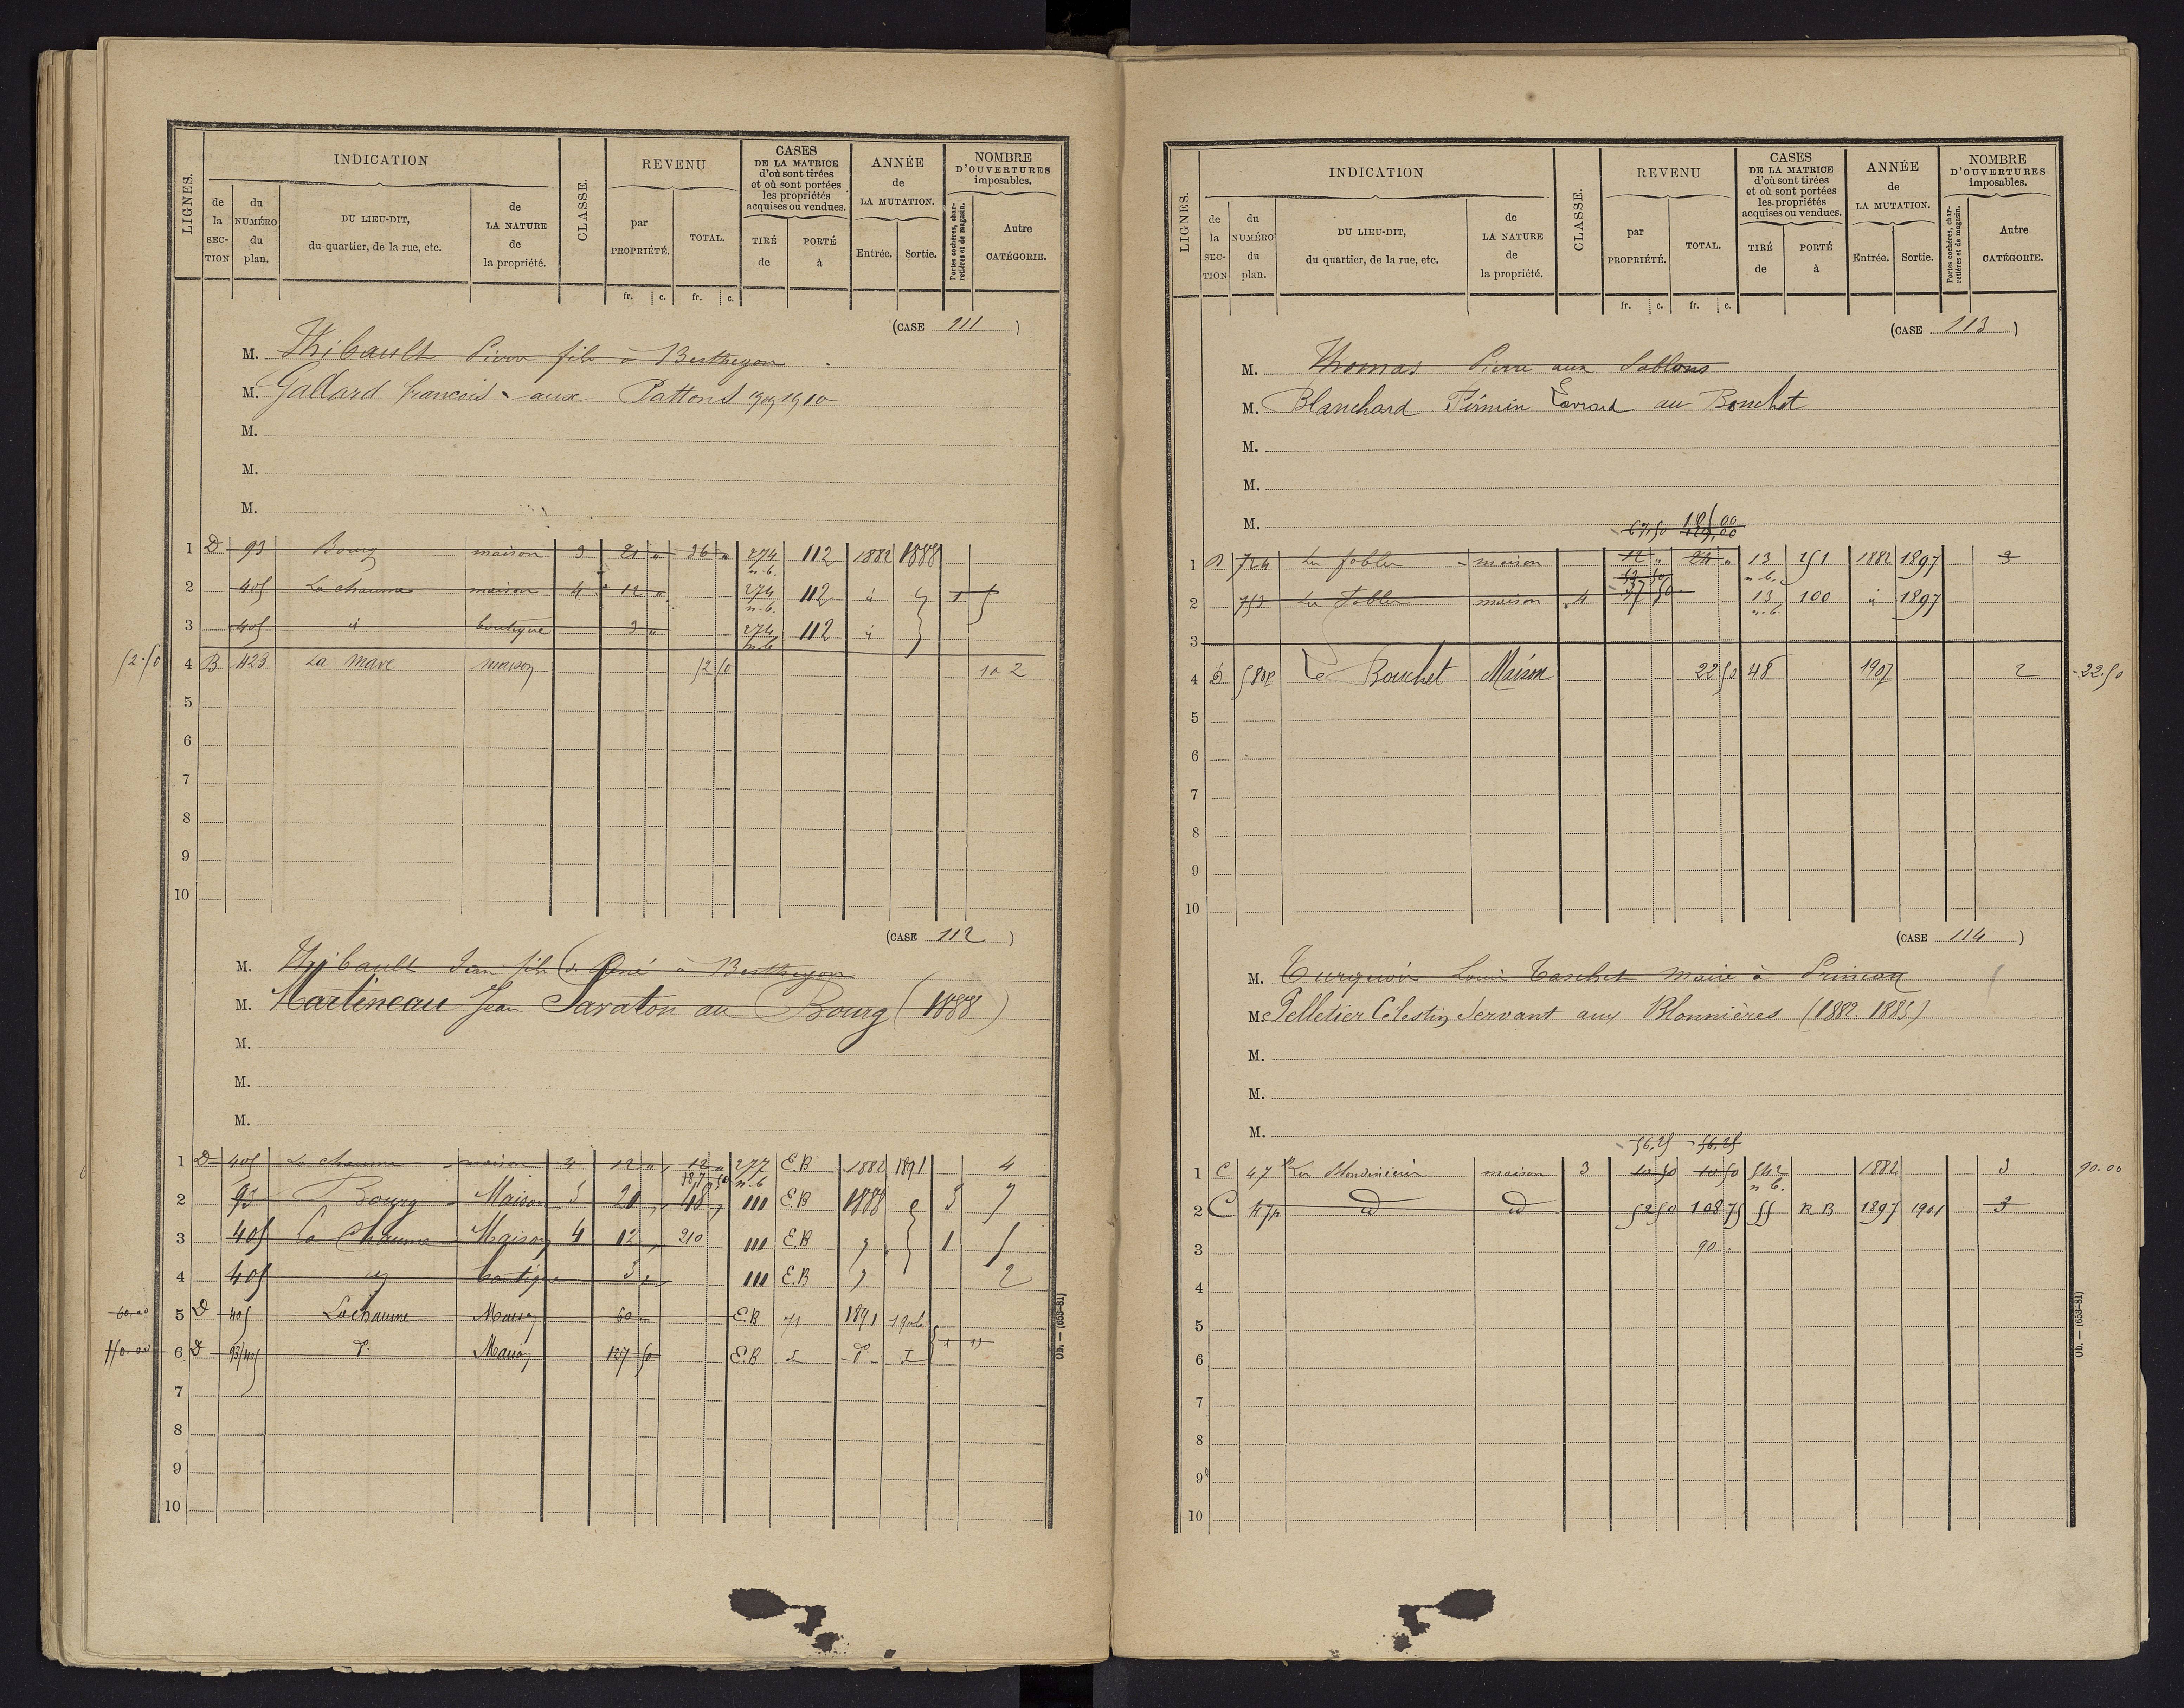 LIGNES.
INDICATION
de la SECTION
du NUMÉRO du plan.
DU LIEU-DIT, du quartier, de la rue, etc.
de LA NATURE de la propriété.
CLASSE.
REVENU
par PROPRIÉTÉ.
TOTAL.
fr. c. fr. c.
CASES DE LA MATRICE d'où sont tirées et où sont portées les propriétés acquises ou vendues.
TIRÉ de
PORTÉ à
ANNÉE de LA MUTATION.
Entrée. Sortie.
NOMBRE D'OUVERTURES imposables.
Portes cochères, charretières et de magasin.
Autre CATÉGORIE.
(CASE 111)
M. Thibault Pierre fils à Berthegon
M. Gallard francois aux Pattons 1909 1910
M.
M.
M.
1 D 93 Bourg maison 3 21 " 36 " 274 n.b. 112 1882 1888
2 405 La chaume maison 4 12 " 274 n.b. 112 id 1 5
3 405 id boutique 3 " 274 112 id
52.50 4 B 423 La mare maison 52 50 2
5
6
7
8
9
10
(CASE 112)
M. Thibault Jean fils de René à Berthegon
M. Martineau Jean Savaton au Bourg (1888)
M.
M.
M.
1 D 405 La chaume maison 4 12 " 12 " 277 n.b E.B 1882 1891 4
187 50
2 93 Bourg Maison 3 20 48 111 E.B 1888 3 7
3 405 La Chaume Maison 4 12 210 111 E.B 1
4 405 boutique 3 111 E.B 2
60.00 5 D 405 Lachaume Maison 60 E.B 71 1891 1906
110.00 6 D 93/405 Maison 127 50 E.B
7
8
9
10
Ob. — (653-81)
LIGNES.
INDICATION
de la SECTION
du NUMÉRO du plan.
DU LIEU-DIT, du quartier, de la rue, etc.
de LA NATURE de la propriété.
CLASSE.
REVENU
par PROPRIÉTÉ.
TOTAL.
fr. c. fr. c.
CASES DE LA MATRICE d'où sont tirées et où sont portées les propriétés acquises ou vendues.
TIRÉ de
PORTÉ à
ANNÉE de LA MUTATION.
Entrée. Sortie.
NOMBRE D'OUVERTURES imposables.
Portes cochères, charretières et de magasin.
Autre CATÉGORIE.
(CASE 113)
M. Thomas Pierre aux Sablons
M. Blanchard Firmin Evrard au Bouchet
M.
M.
M.
67,50
1 D 724 maison 12 " 24 " 13 n.b. 151 1882 1897 3
2 753 maison 4 37 50 13 n.b. 100 id 1897
3
4 580p Le Bouchet Maison 22 50 48 1907 2 22.50
5
6
7
8
9
10
(CASE 114)
M. Turquois Louis Taschet maire à Prinçay
M. Pelletier Célestin Servant aux Blonnières (1882. 1883)
M.
M.
M.
56,25 56,25
1 C 47 maison 3 10 50 10 50 542 n b. 1882 3 90.00
2 C 47p id id 52 50 108 75 55 R B 1897 1901 3
3 90
4
5
6
7
8
9
10
Ob. — (653-81)